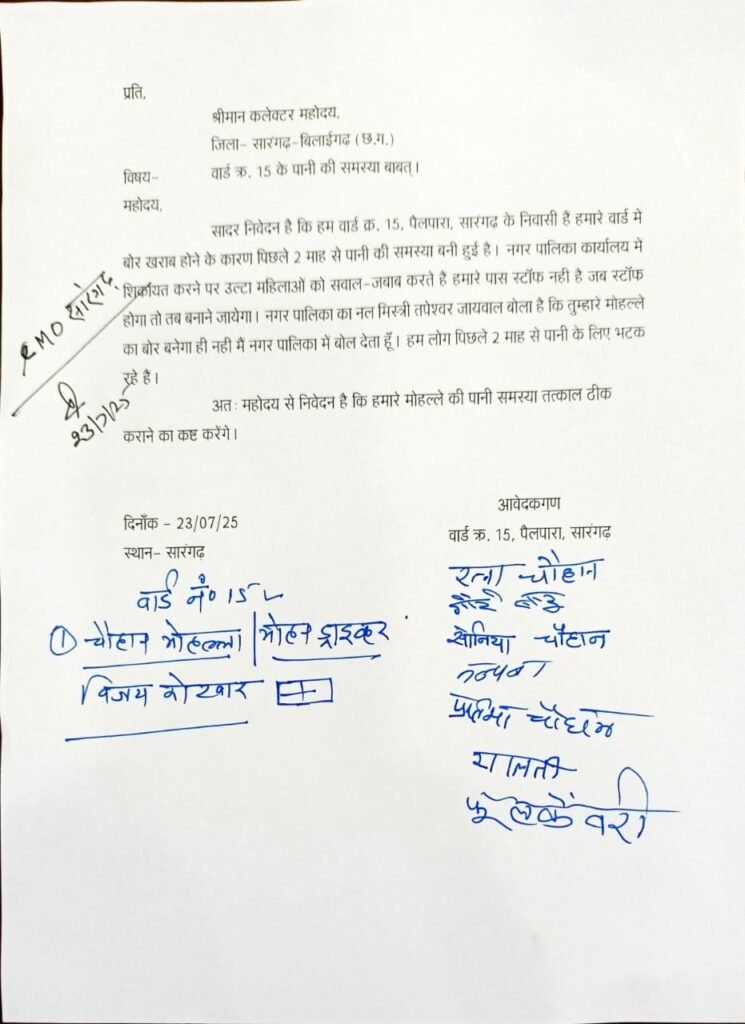 प्रति,
श्रीमान कलेक्टर महोदय,
जिला– सारगढ़–बिलाईगढ़ (छ.ग.)
विषय– वार्ड क्र. 15 के पानी की समस्या बाबत्।
महोदय,
सादर निवेदन है कि हम वार्ड क्र. 15, पैलपारा, सारगढ़ के निवासी है हमारे वार्ड में
बोर खराब होने के कारण पिछले 2 माह से पानी की समस्या बनी हुई है। नगर पालिका कार्यालय में
शिकायत करने पर उल्टा महिलाओं को सवाल-जबाब करते है हमारे पास स्टॉफ नही है जब स्टॉफ
होगा तो तब बनाने जायेगा। नगर पालिका का नल मिस्त्री तपेश्वर जायवाल बोला है कि तुम्हारे मोहल्ले
का बोर बनेगा ही नही मैं नगर पालिका में बोल देता हूँ। हम लोग पिछले 2 माह से पानी के लिए भटक
रहे है।
अतः महोदय से निवेदन है कि हमारे मोहल्ले की पानी समस्या तत्काल ठीक
कराने का कष्ट करेंगे।
CMO सारंगढ़
23/7/25
दिनाँक – 23/07/25
स्थान– सारंगढ़
वार्ड नं० 15
① चौहान मोहल्ला / मोहन ड्राइवर
विजय
आवेदकगण
वार्ड क्र. 15, पैलपारा, सारंगढ़
रत्ना चौहान
सोनिया चौहान
प्रतिमा चौहान
मालती
फूलकुँवरी